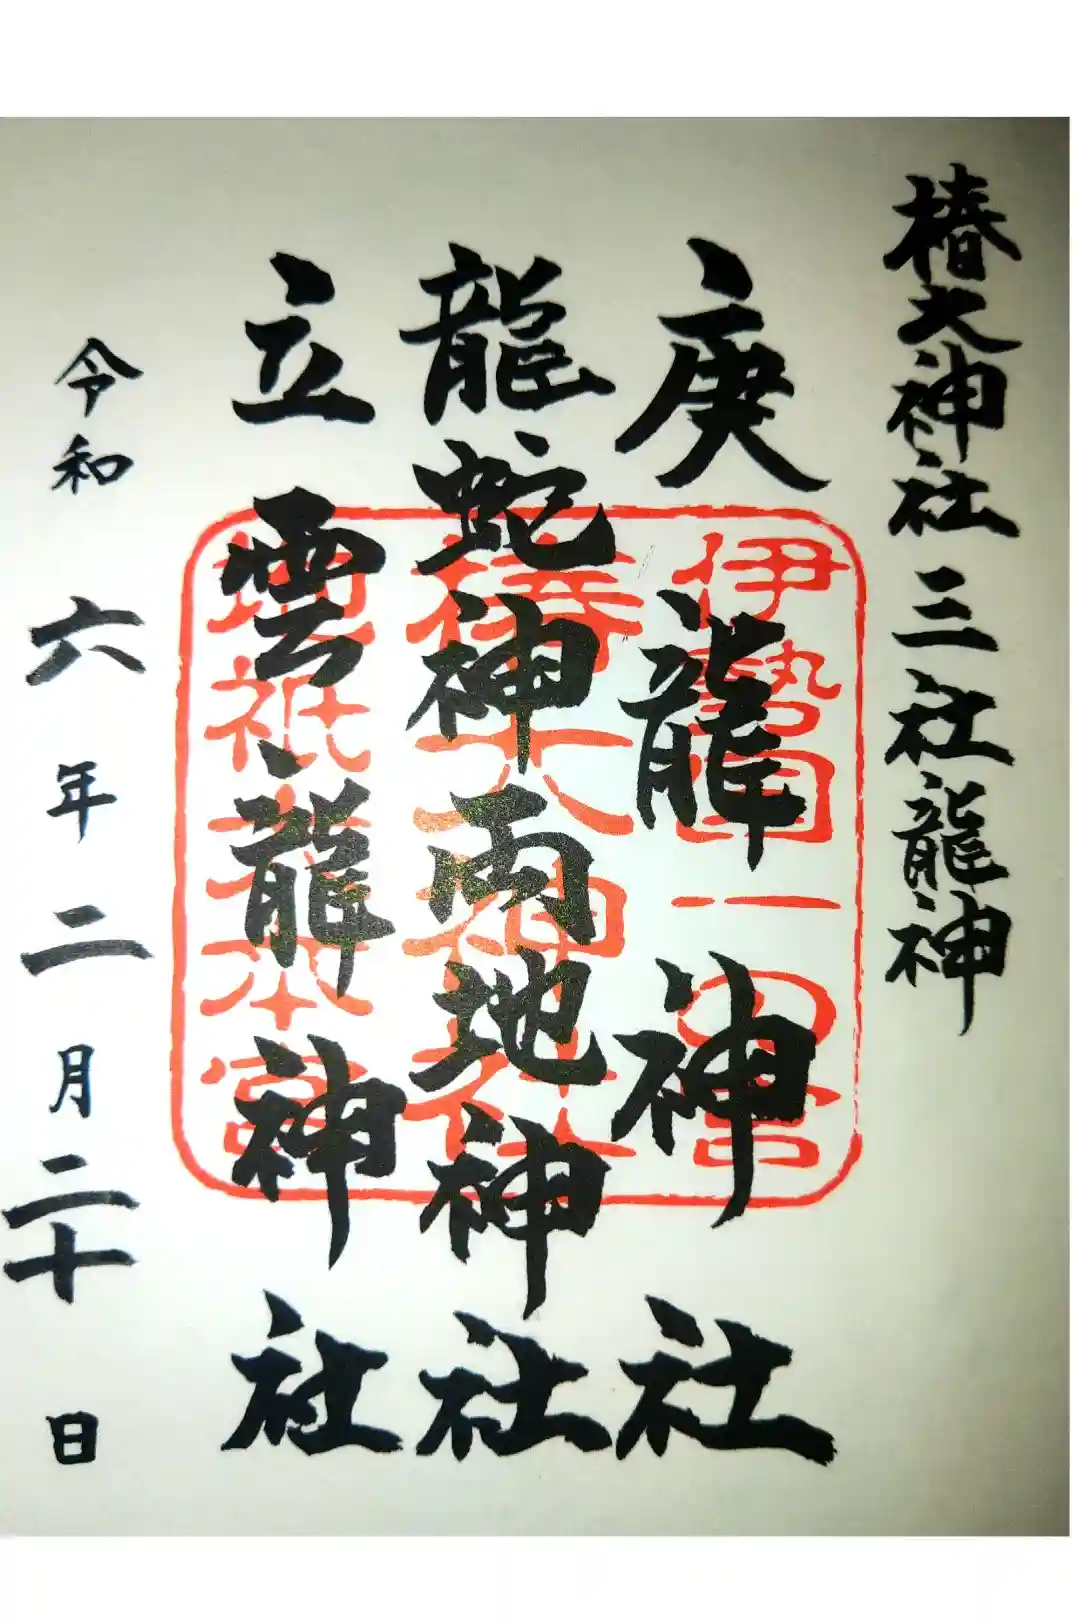 椿大神社 三社龍神
庚龍神社
龍蛇神両地神社
立雲龍神社
令和六年二月二十日
伊勢国一の宮
椿大神社
地祇大本宮